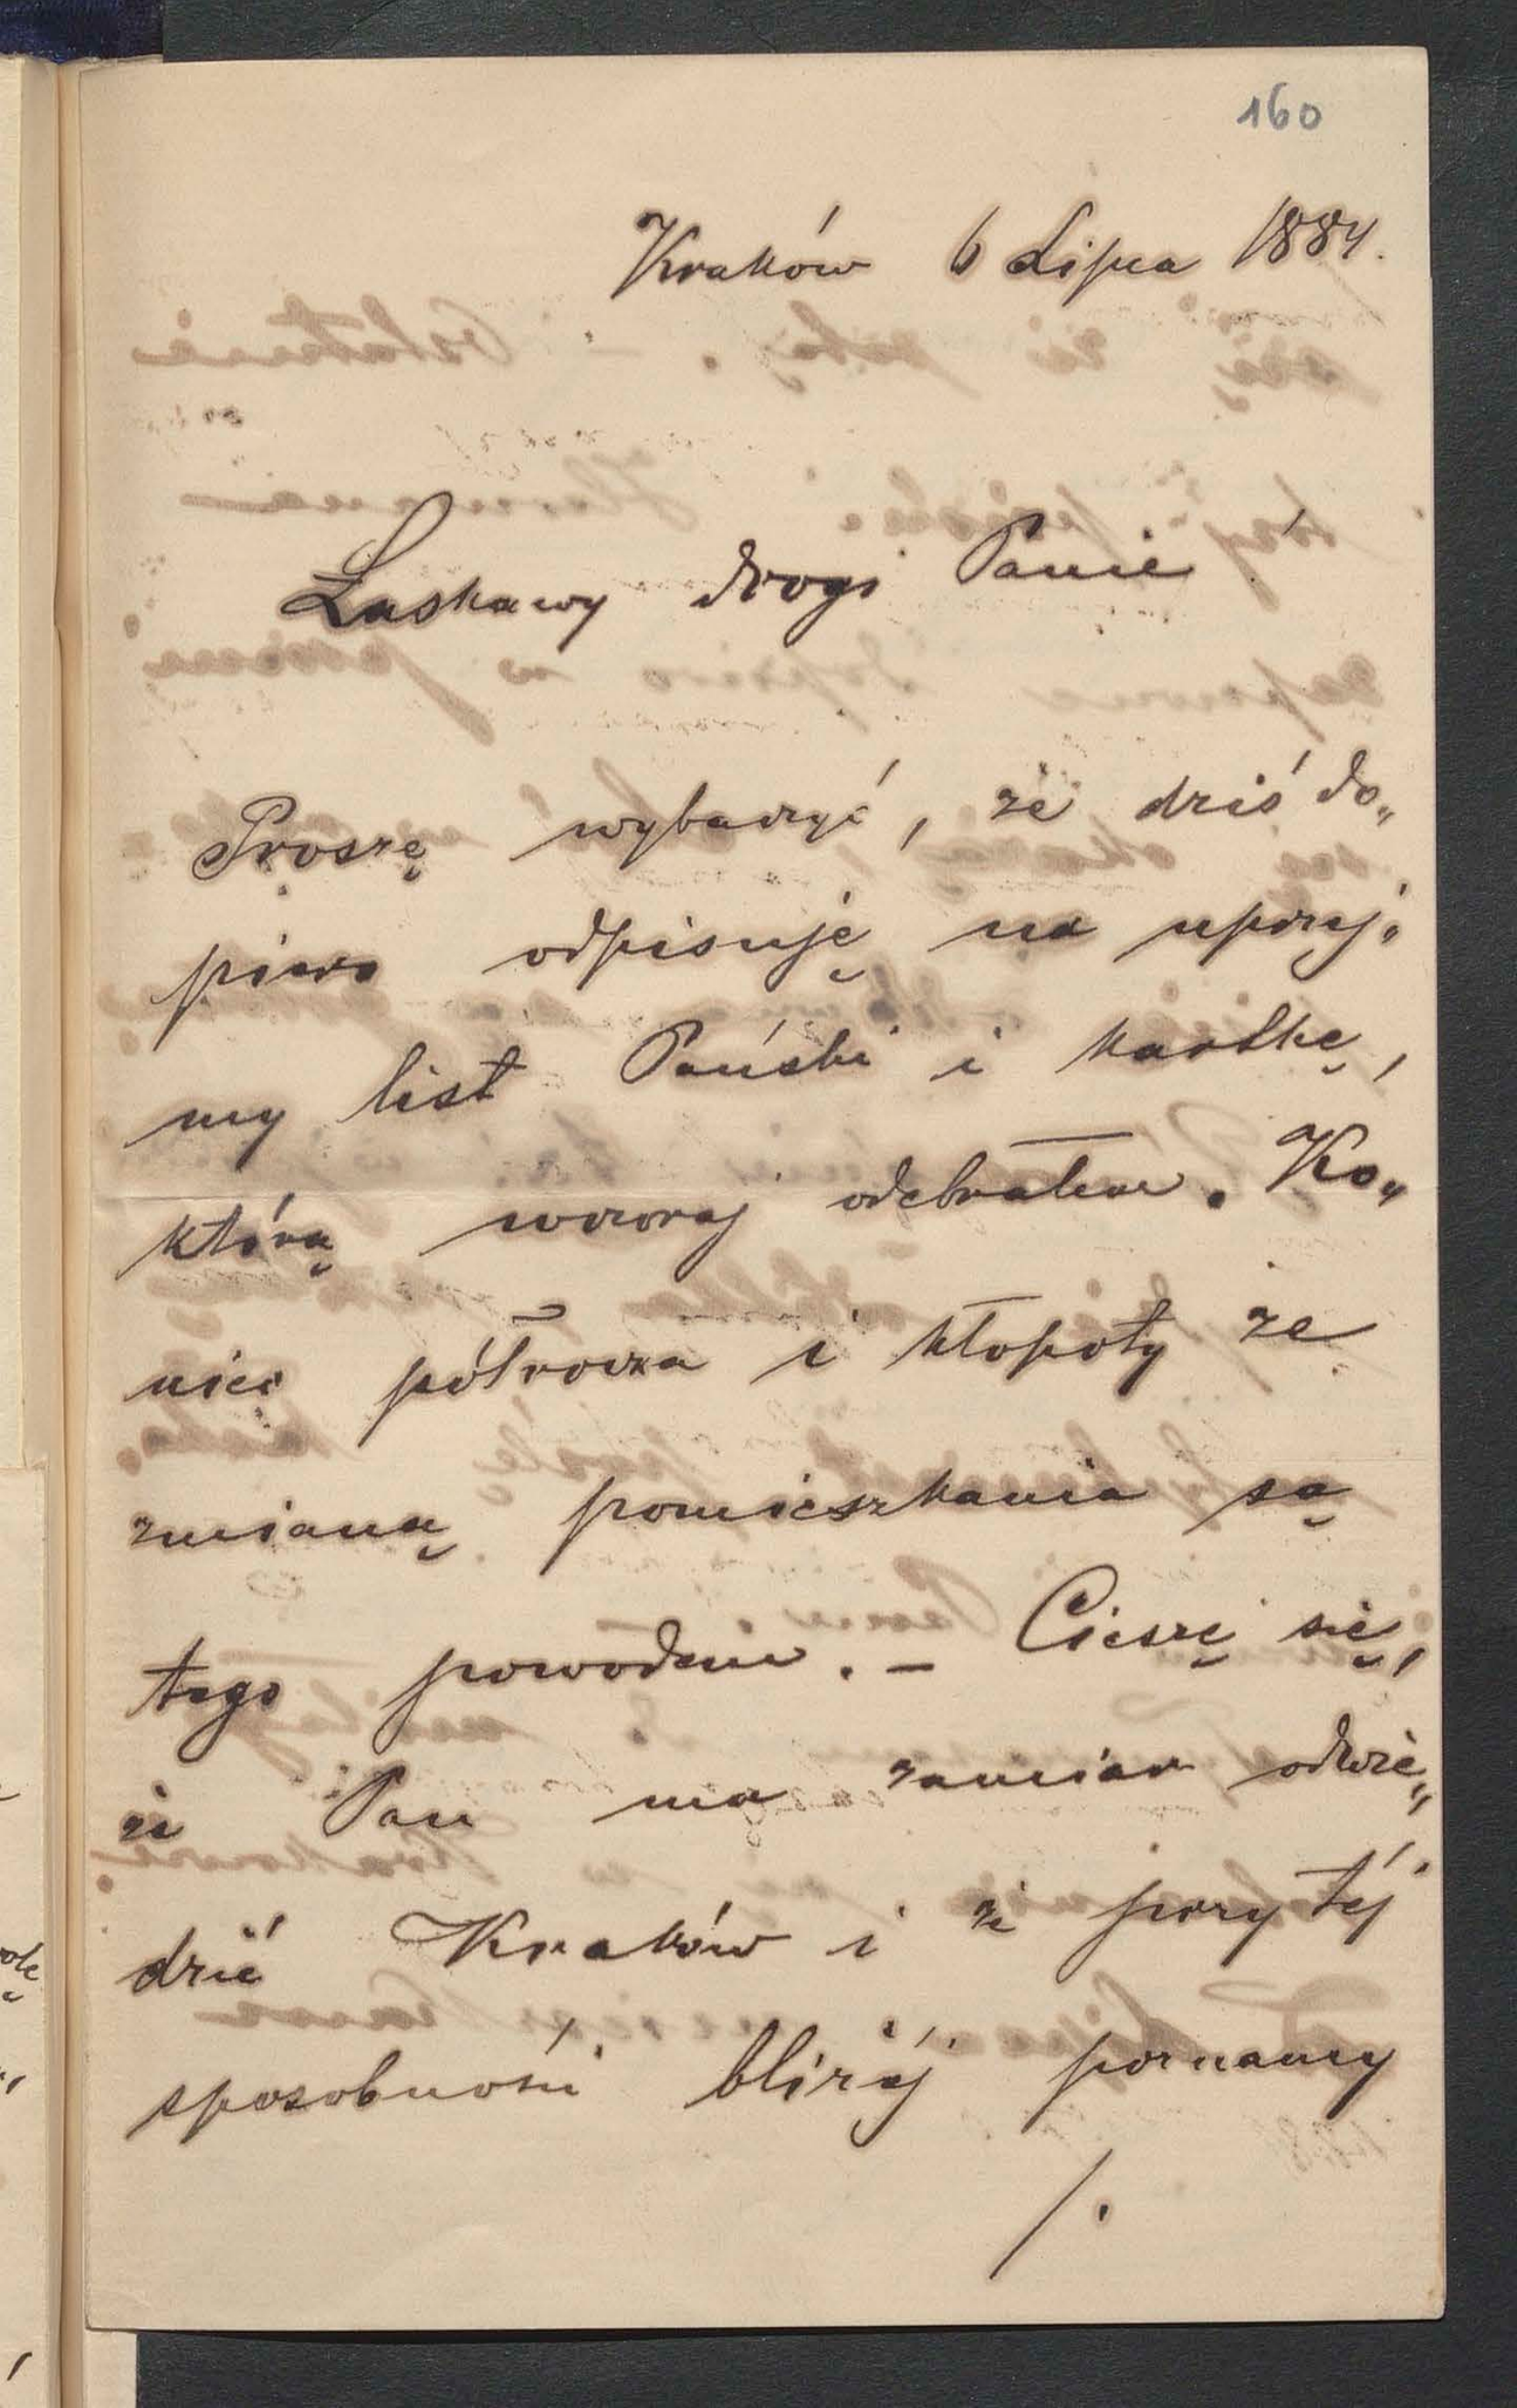 160
Kraków 6 Lipca 1884.
Łaskawy drogi Panie!
Proszę wybaczyć, że dziś do„
piero odpisuję na uprzej„
my list Pański i kartkę,
którą wczoraj odebrałem. Ko„
niec półrocza i kłopoty ze
zmianą pomieszkania są
tego powodem. – Cieszę się,
że Pan ma zamiar odwie„
dzić Kraków i że przy téj
sposobności bliżéj poznamy
/.